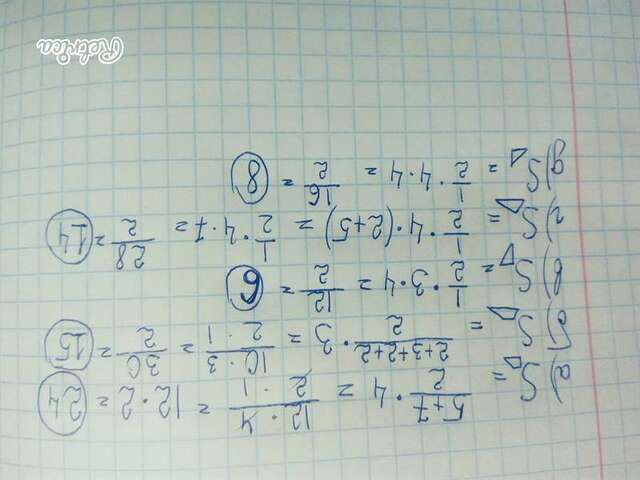 а) S = 5+7/2 · 4 = 12 · 4/2 · 1 = 12 · 2 = 24
б) S = 2+3+2+2/2 · 3 = 10 · 3/2 · 1 = 30/2 = 15
в) S = 1/2 · 3 · 4 = 12/2 = 6
г) S = 1/2 · 4 · (2+5) = 1/2 · 4 · 7 = 28/2 = 14
д) S = 1/2 · 4 · 4 = 16/2 = 8
Retrica